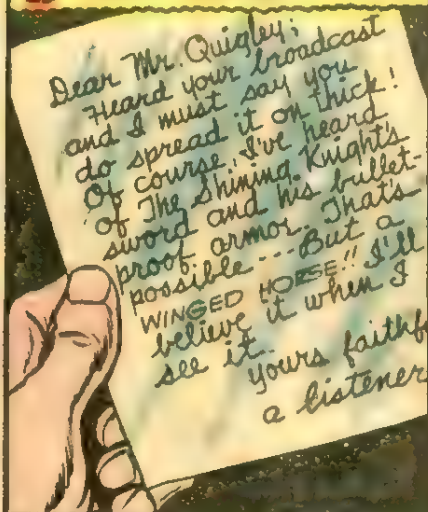 Dear Mr. Quigley;
Heard your broadcast
and I must say you
do spread it on thick!
Of course, I've heard
of The Shining Knight's
sword and his bullet-
proof armor. That's
possible --- But a
WINGED HORSE!! I'll
believe it when I
see it.
Yours faithf
a listener